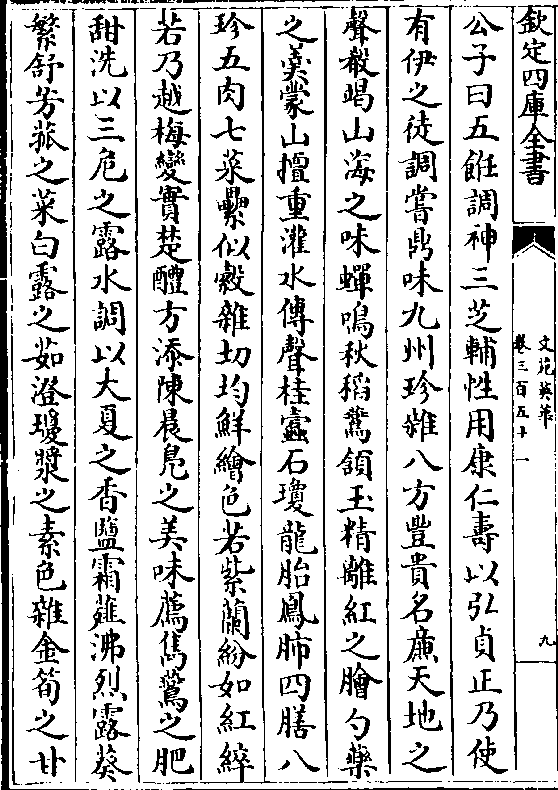 欽定四庫全書
文苑英華
卷三百五十一
九
公子曰五飪調神三芝輔性用康仁壽以弘貞正乃使
有伊之徒調嘗鼎味九州珍雜八方豐貴名廉天地之
聲殽竭山海之味蟬鳴秋稻鶩頷玉精離紅之膾勺藥
之羮蒙山擅重灌水傳聲桂蠹石瓊龍胎鳳肺四膳八
珍五肉七菜纍似縠雜切均鮮繪色若紫蘭紛如紅綷
若乃越梅變實楚醴方添陳晨鳬之美味薦雋鶩之肥
甜洗以三危之露水調以大夏之香鹽霜薤沸烈露葵
繁舒芳菰之菜白露之茹澄瓊漿之素色雜金筍之甘